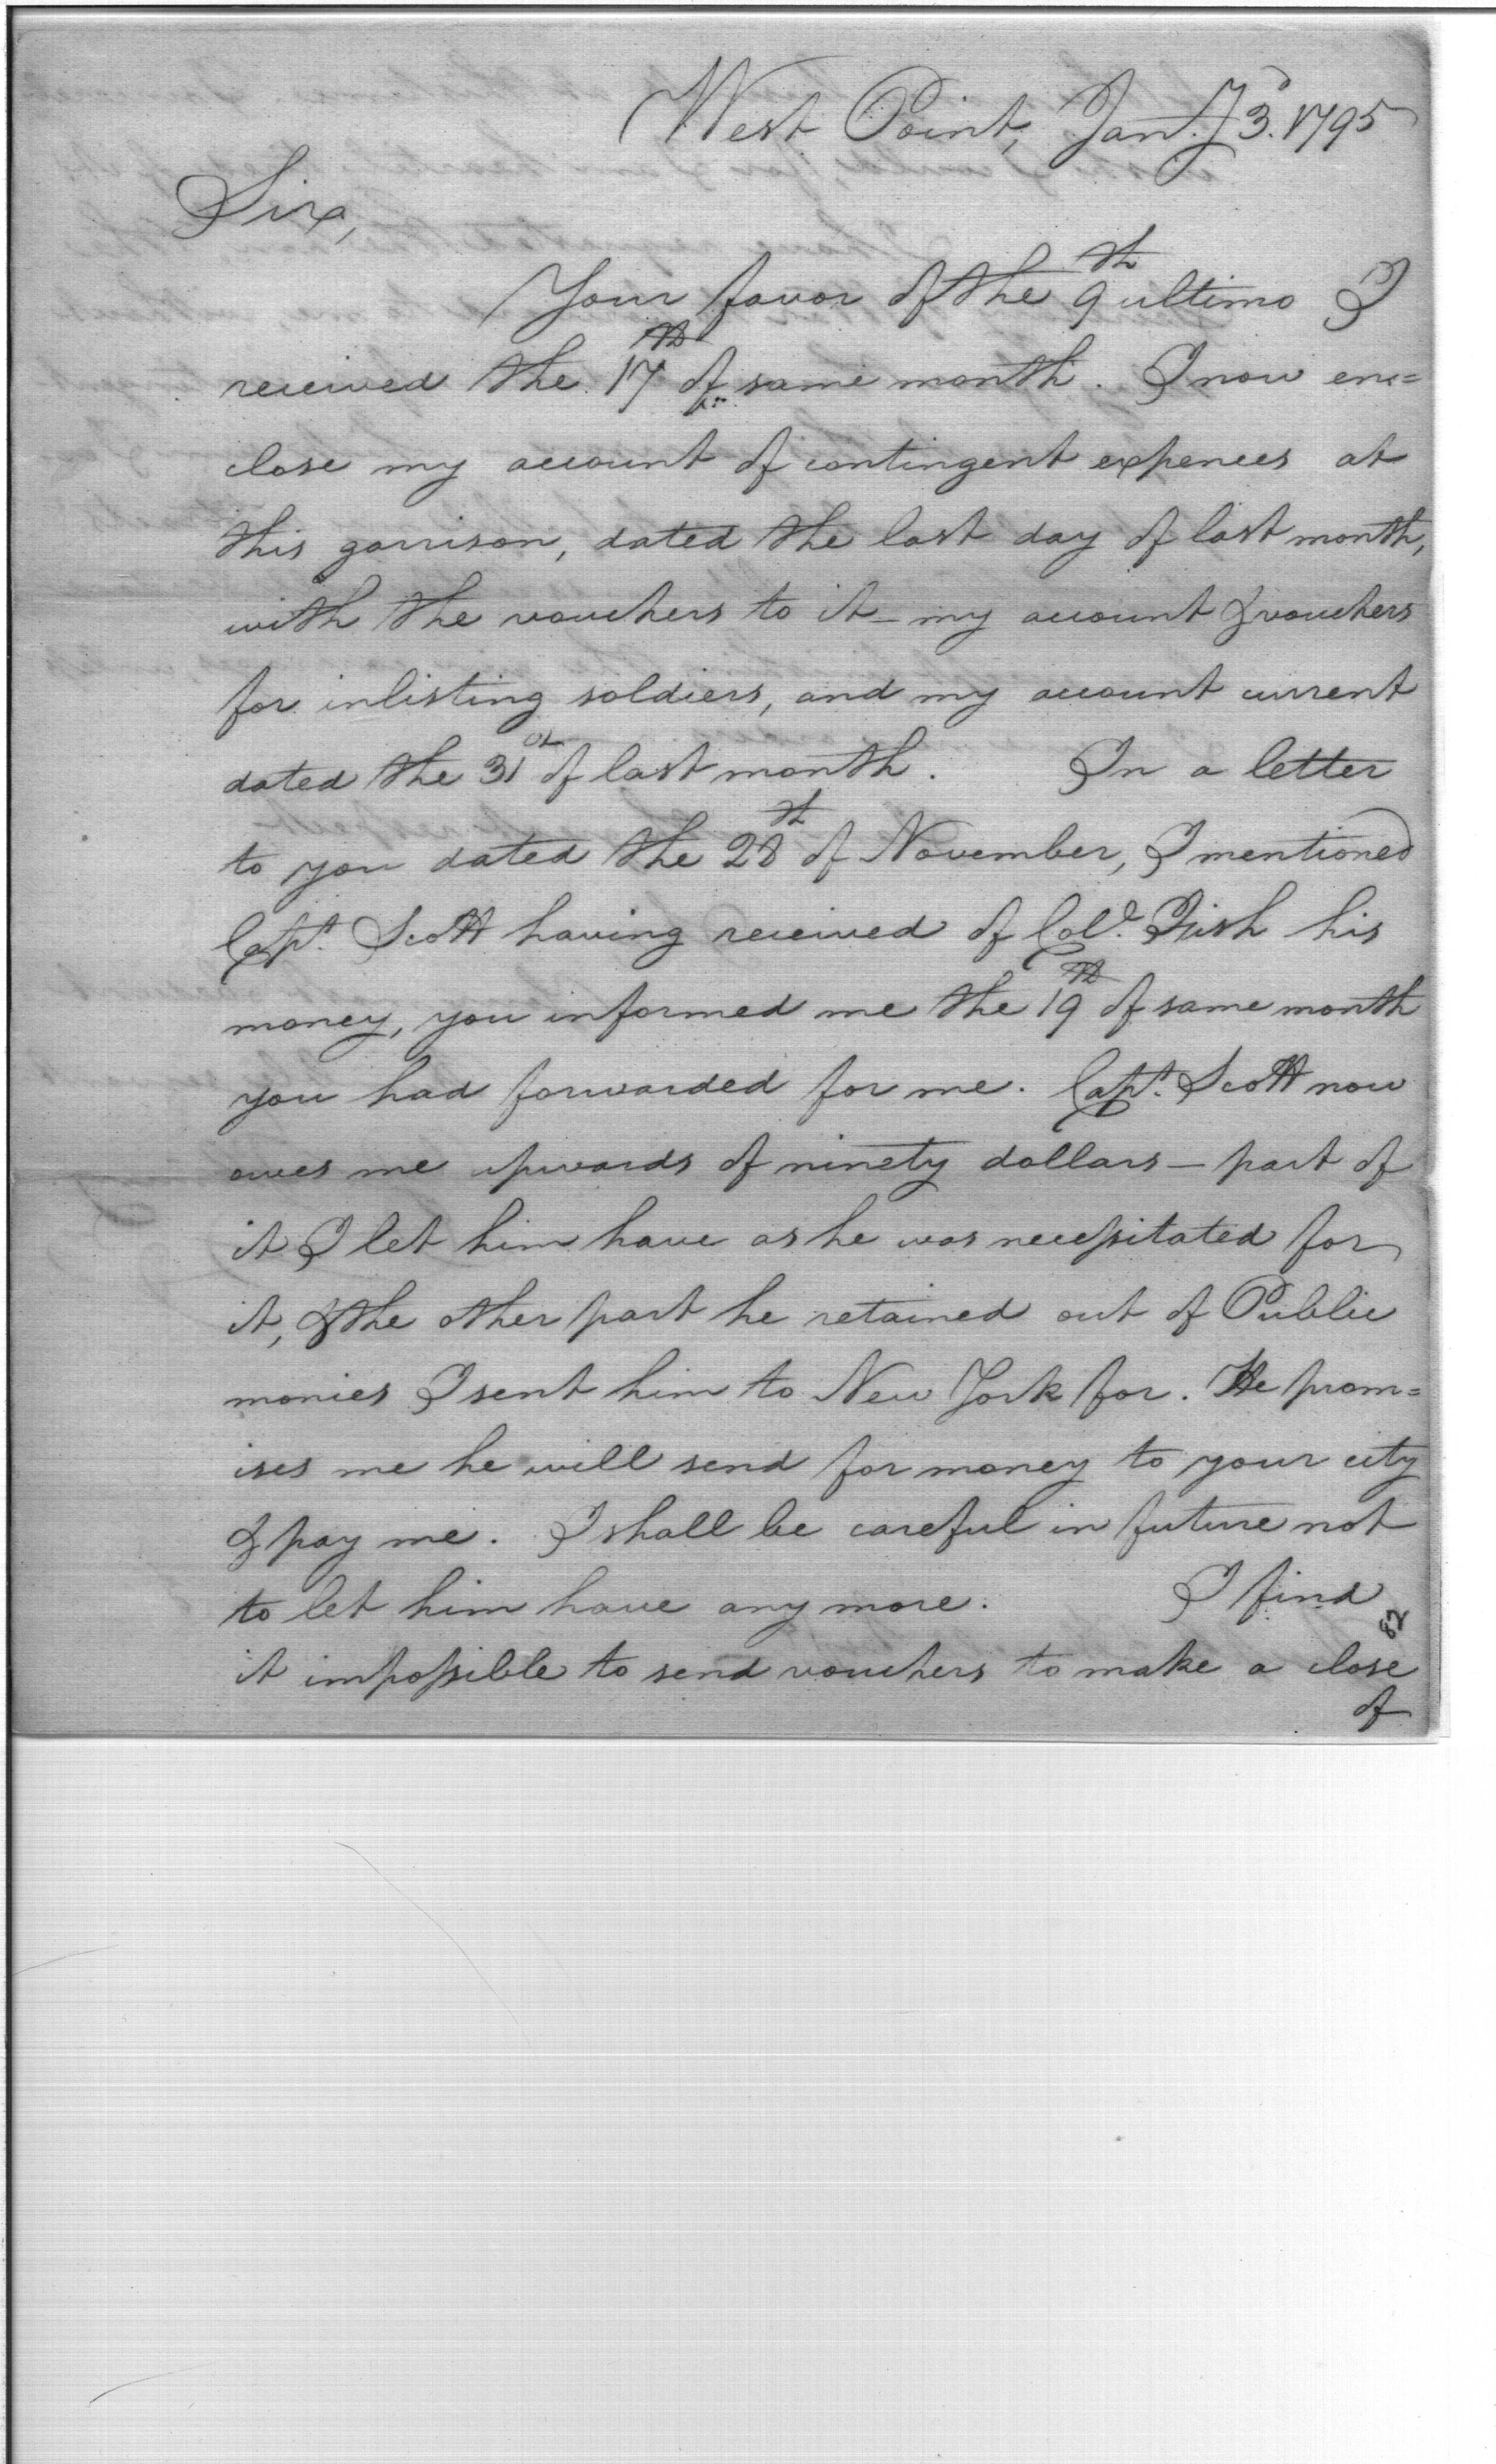 West Point, Jany. 3d. 1795
Sir,
Your favor of the 9th ultimo I
received the 17th of same month. I now en=
close my account of contingent expences at
this garrison, dated the last day of last month,
with the vouchers to it – my account & vouchers
for inlisting soldiers, and my account current
dated the 31st of last month. In a letter
to you dated the 28th of November, I mentioned
Capt. Scott having received of Colo. Fish his
money, you informed me the 19th of same month
you had forwarded for me. Capt. Scott now
owes me upwards of ninety dollars – part of
it I let him have as he was necessitated for
it, & the other part he retained out of Public
monies I sent him to New York for. He prom=
ises me he will send for money to your city
& pay me. I shall be careful in future not
to let him have any more. I find
it impossible to send vouchers to make a close
of